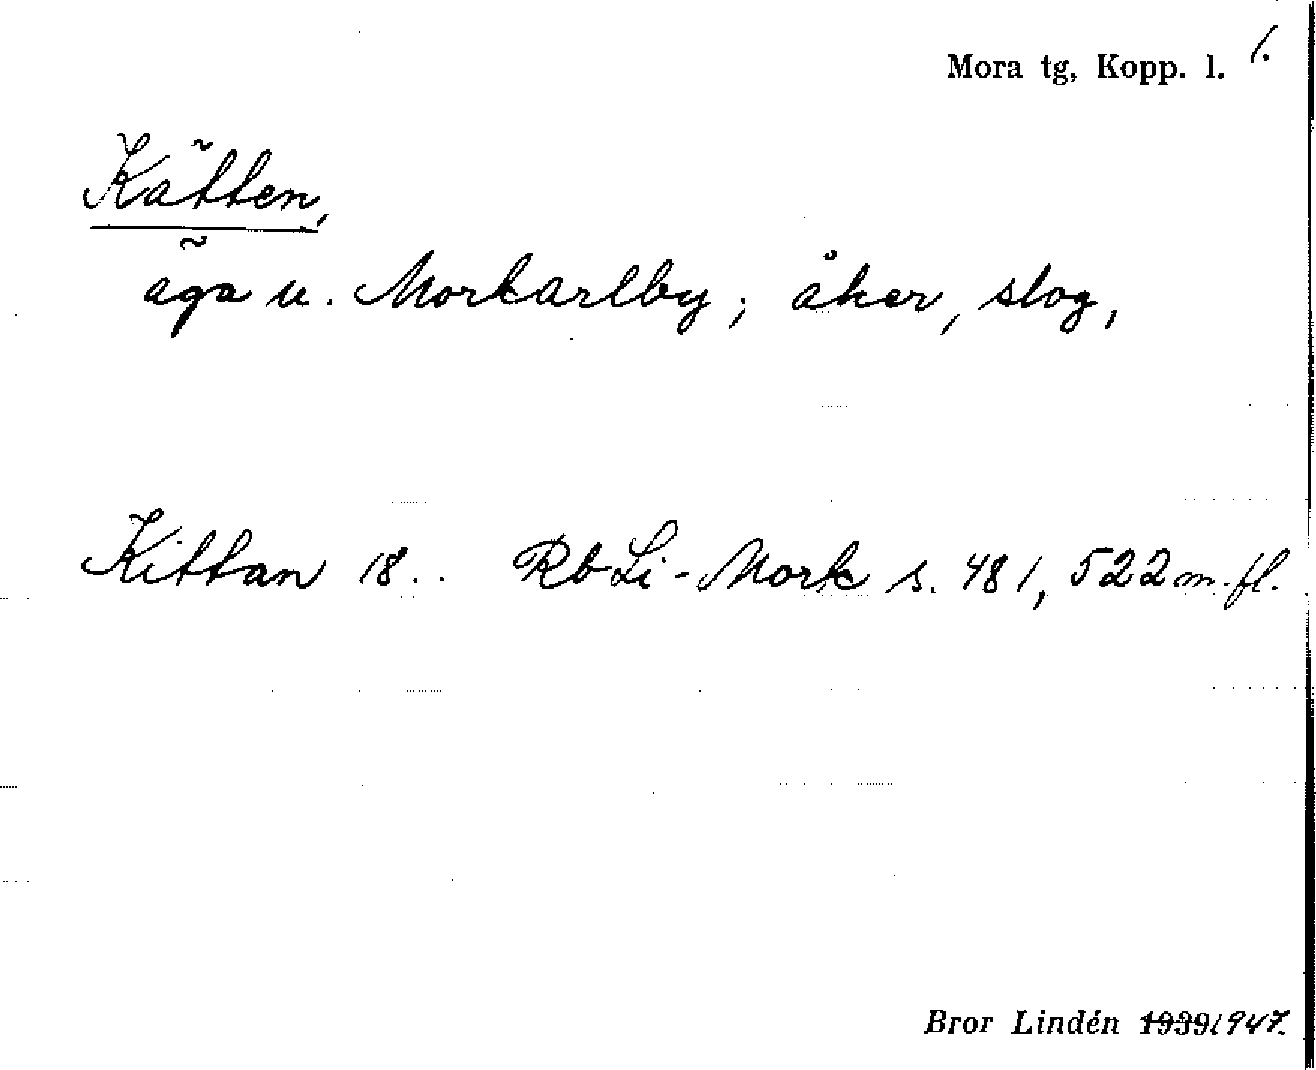 Mora tg, Kopp. l. 1.
Kätten,
äga u. Morkarlby; åker, slog,
Kittan 18.. Rb Li-Mork s. 481, 522 m.fl.
Bror Lindén 1939 1947.